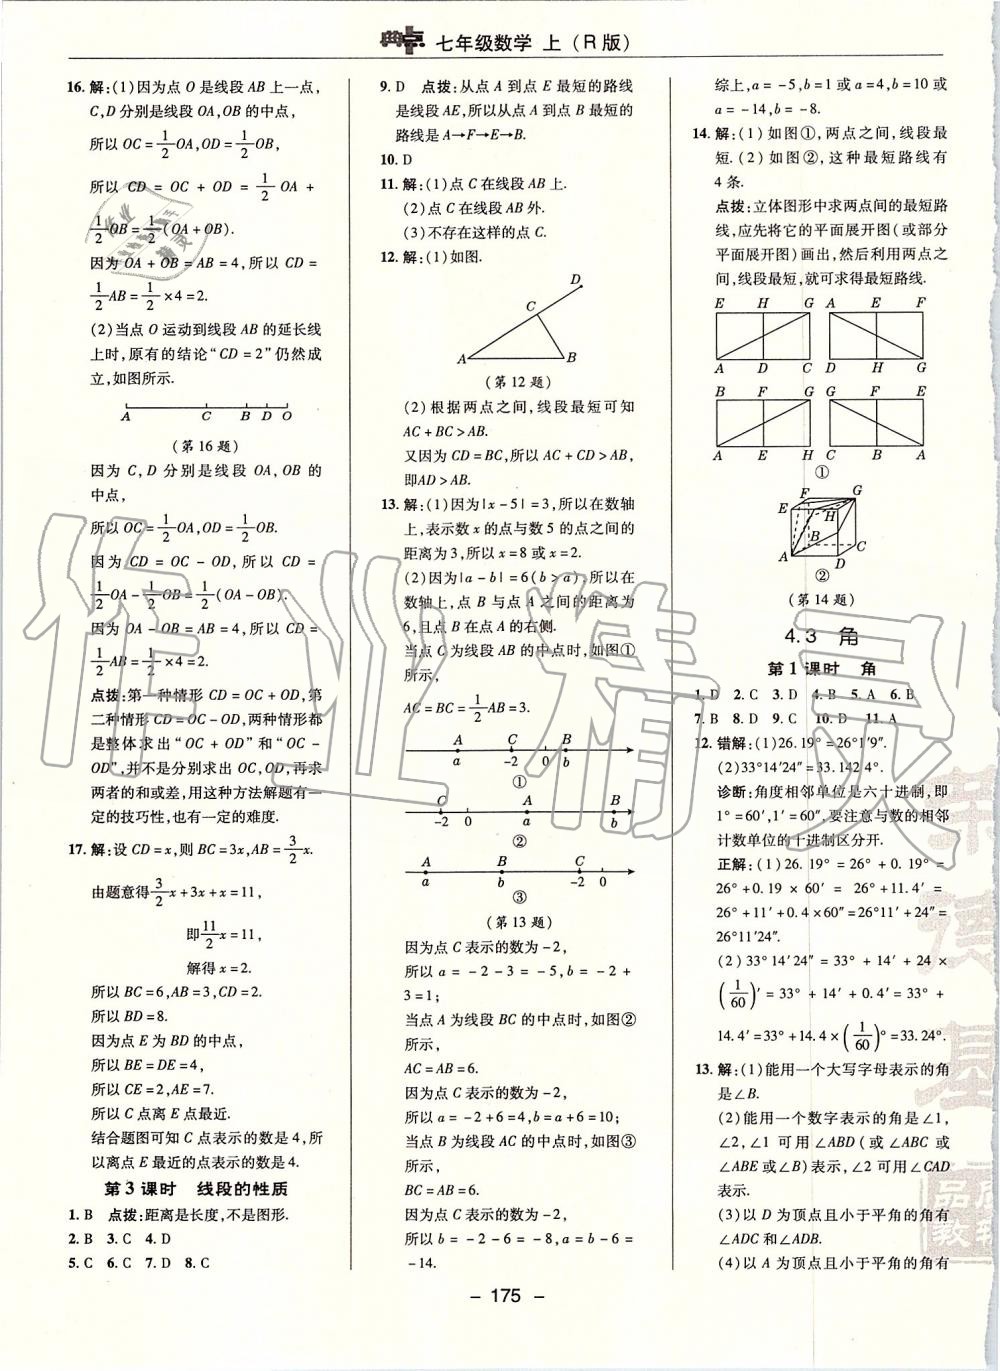 典点 七年级数学 上(R版)
16. 解:(1)因为点 O 是线段 AB 上一点,
C,D 分别是线段 OA,OB 的中点,
所以 OC=1/2OA,OD=1/2OB,
所以 CD = OC + OD = 1/2 OA +
1/2OB=1/2(OA+OB).
因为 OA+OB=AB=4,所以 CD=
1/2AB=1/2×4=2.
(2)当点 O 运动到线段 AB 的延长线
上时,原有的结论“CD=2”仍然成
立,如图所示.
A C B D O
(第16题)
因为 C,D 分别是线段 OA,OB 的
中点,
所以 OC=1/2OA,OD=1/2OB.
因为 CD=OC-OD,所以 CD=
1/2OA-1/2OB=1/2(OA-OB).
因为 OA-OB=AB=4,所以 CD=
1/2AB=1/2×4=2.
点拨:第一种情形 CD=OC+OD,第
二种情形 CD=OC-OD,两种情形都
是整体求出“OC+OD”和“OC-
OD”,并不是分别求出 OC,OD,再求
两者的和或差,用这种方法解题有一
定的技巧性,也有一定的难度.
17. 解:设 CD=x,则 BC=3x,AB=3/2x.
由题意得3/2x+3x+x=11,
即11/2x=11,
解得 x=2.
所以 BC=6,AB=3,CD=2.
所以 BD=8.
因为点 E 为 BD 的中点,
所以 BE=DE=4,
所以 CE=2,AE=7.
所以 C 点离 E 点最近.
结合题图可知 C 点表示的数是4,所
以离点 E 最近的点表示的数是4.
第3课时 线段的性质
1. B 点拨:距离是长度,不是图形.
2. B 3. C 4. D
5. C 6. C 7. D 8. C
9. D 点拨:从点 A 到点 E 最短的路线
是线段 AE,所以从点 A 到点 B 最短的
路线是 A→F→E→B.
10. D
11. 解:(1)点 C 在线段 AB 上.
(2)点 C 在线段 AB 外.
(3)不存在这样的点 C.
12. 解:(1)如图.
D
C
A B
(第12题)
(2)根据两点之间,线段最短可知
AC+BC>AB.
又因为 CD=BC,所以 AC+CD>AB,
即AD>AB.
13. 解:(1)因为|x-5|=3,所以在数轴
上,表示数 x 的点与数5 的点之间的
距离为3,所以 x=8 或 x=2.
(2)因为|a-b|=6(b>a),所以在
数轴上,点 B 与点 A 之间的距离为
6,且点 B 在点 A 的右侧.
当点 C 为线段 AB 的中点时,如图①
所示,
AC=BC=1/2AB=3.
A C B
a -2 0 b
①
C A B
-2 0 a b
②
A B C
a b -2 0
③
(第13题)
因为点 C 表示的数为-2,
所以 a=-2-3=-5,b=-2+
3=1;
当点 A 为线段 BC 的中点时,如图②
所示,
AC=AB=6.
因为点 C 表示的数为-2,
所以 a=-2+6=4,b=a+6=10;
当点 B 为线段 AC 的中点时,如图③
所示,
BC=AB=6.
因为点 C 表示的数为-2,
所以 b=-2-6=-8,a=b-6=
-14.
综上,a=-5,b=1 或 a=4,b=10 或
a=-14,b=-8.
14. 解:(1)如图①,两点之间,线段最
短.(2)如图②,这种最短路线有
4条.
点拨:立体图形中求两点间的最短路
线,应先将它的平面展开图(或部分
平面展开图)画出,然后利用两点之
间,线段最短,就可求得最短路线.
E H G A E F
A D C D H G
B F G G F E
A E H C B A
①
F G
E H
B C
A D
②
(第14题)
4.3 角
第1课时 角
1. D 2. C 3. D 4. B 5. A 6. B
7. B 8. D 9. C 10. D 11. A
12. 错解:(1)26.19°=26°1′9″.
(2)33°14′24″=33.142 4°.
诊断:角度相邻单位是六十进制,即
1°=60′,1′=60″.要注意与数的相邻
计数单位的十进制区分开.
正解:(1)26.19°=26°+0.19°=
26°+0.19×60′=26°+11.4′=
26°+11′+0.4×60″=26°+11′+24″=
26°11′24″.
(2)33°14′24″=33°+14′+24×
(1/60)′=33°+14′+0.4′=33°+
14.4′=33°+14.4×(1/60)°=33.24°.
13. 解:(1)能用一个大写字母表示的角
是∠B.
(2)能用一个数字表示的角是∠1,
∠2,∠1 可用∠ABD(或∠ABC或
∠ABE或∠B)表示,∠2 可用∠CAD
表示.
(3)以 D 为顶点且小于平角的角有
∠ADC和∠ADB.
(4)以 A 为顶点且小于平角的角有
- 175 -
作业精灵